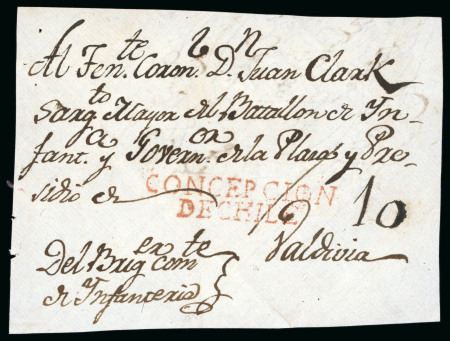 Al Ten.te Coron.l D.n Juan Clark
Sarg.to Mayor del Batallon de Yn-
fant.a y Govern.or de la Plaza y Pre-
sidio de
CONCEPCION
DECHILE
10
Valdivia
Del Brig com.te
de Ynfanteria